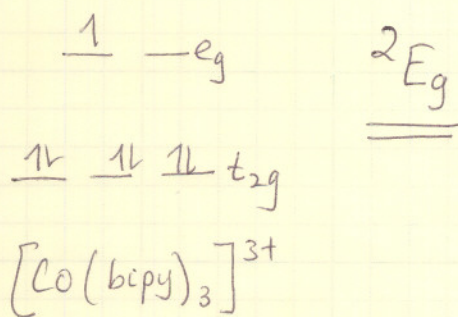 1
e_g
²E_g
1l 1l 1l t_2g
[Co(bipy)_3]^3+